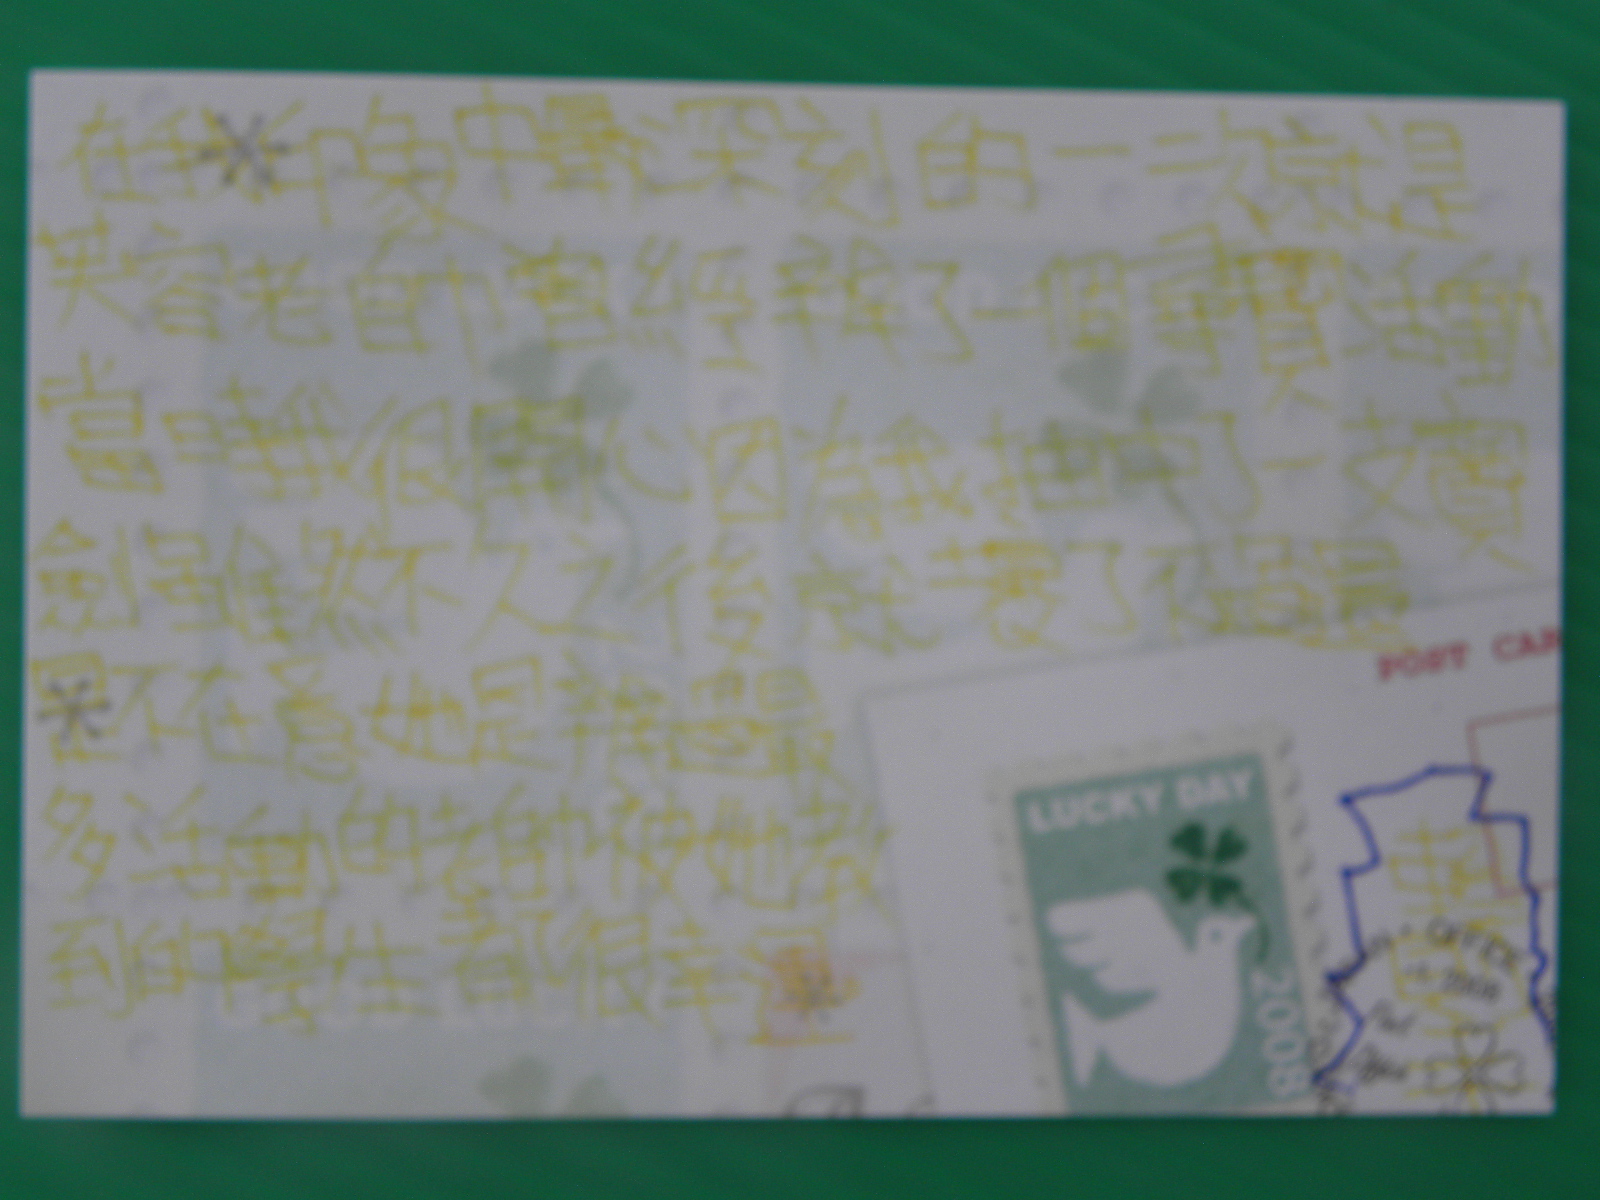 在我印象中最深刻的一次就是
芙容老師曾經辦了一個尋寶活動
當時我很開心因為我抽中了一支寶
劍雖然不久之後就壞了不過最
不在意她是辦過最
多活動的老師被她教
到的學生都很幸
POST CAR
LUCKY DAY
2008
OFFICE
2008